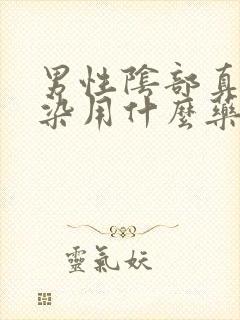 男性陰部真
染用什麼藥
靈氣妖